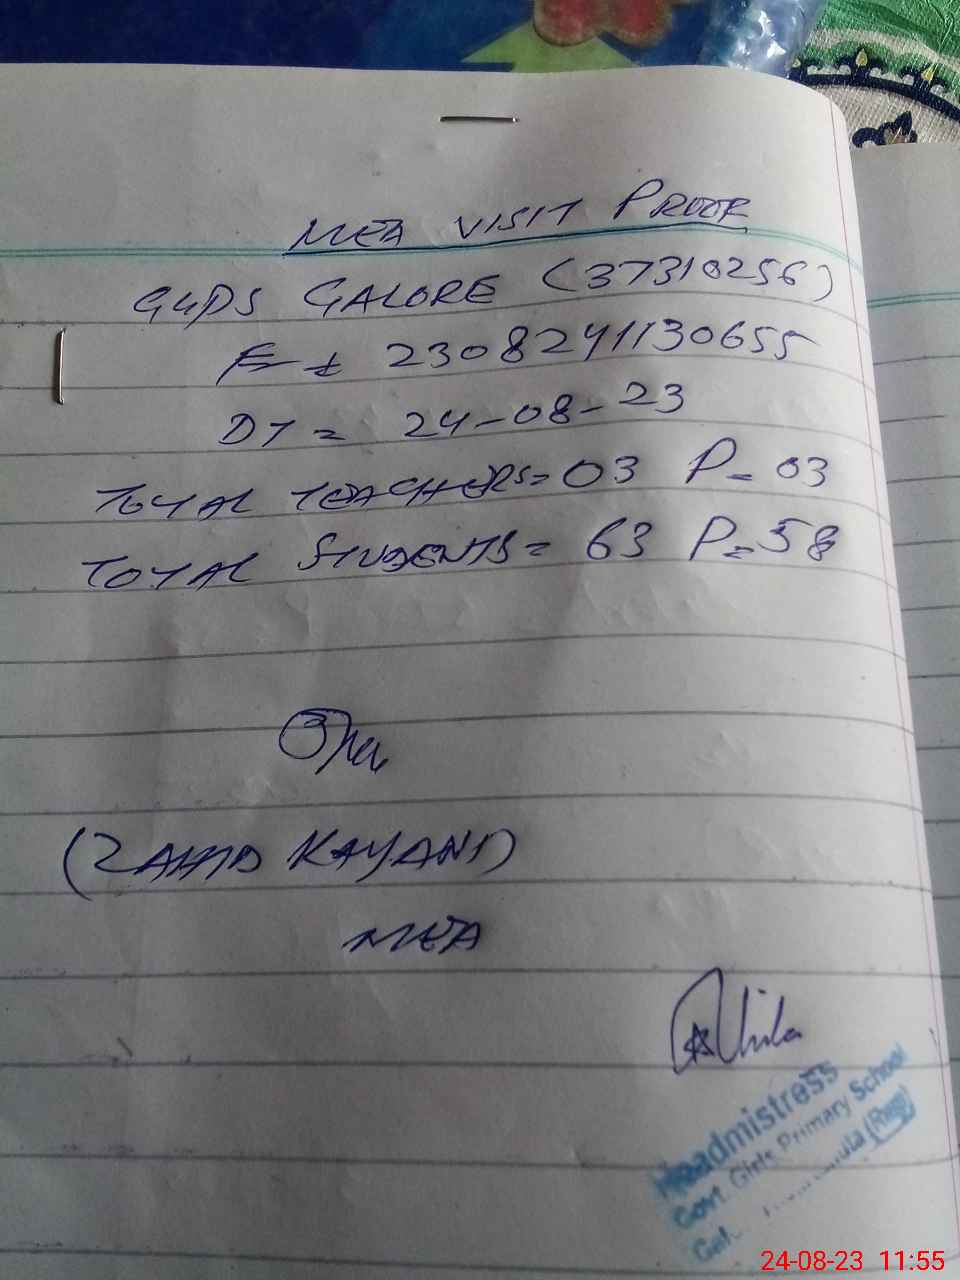 MEA VISIT PROOF
GGPS GALORE (37310256)
2308241130655
DT = 24-08-23
TOTAL TEACHERS = 03 P = 03
TOTAL STUDENTS = 63 P = 58
(ZAHID KAYANI)
MEA
Headmistress
Govt. Girls Primary School
(Rwp)
24-08-23 11:55